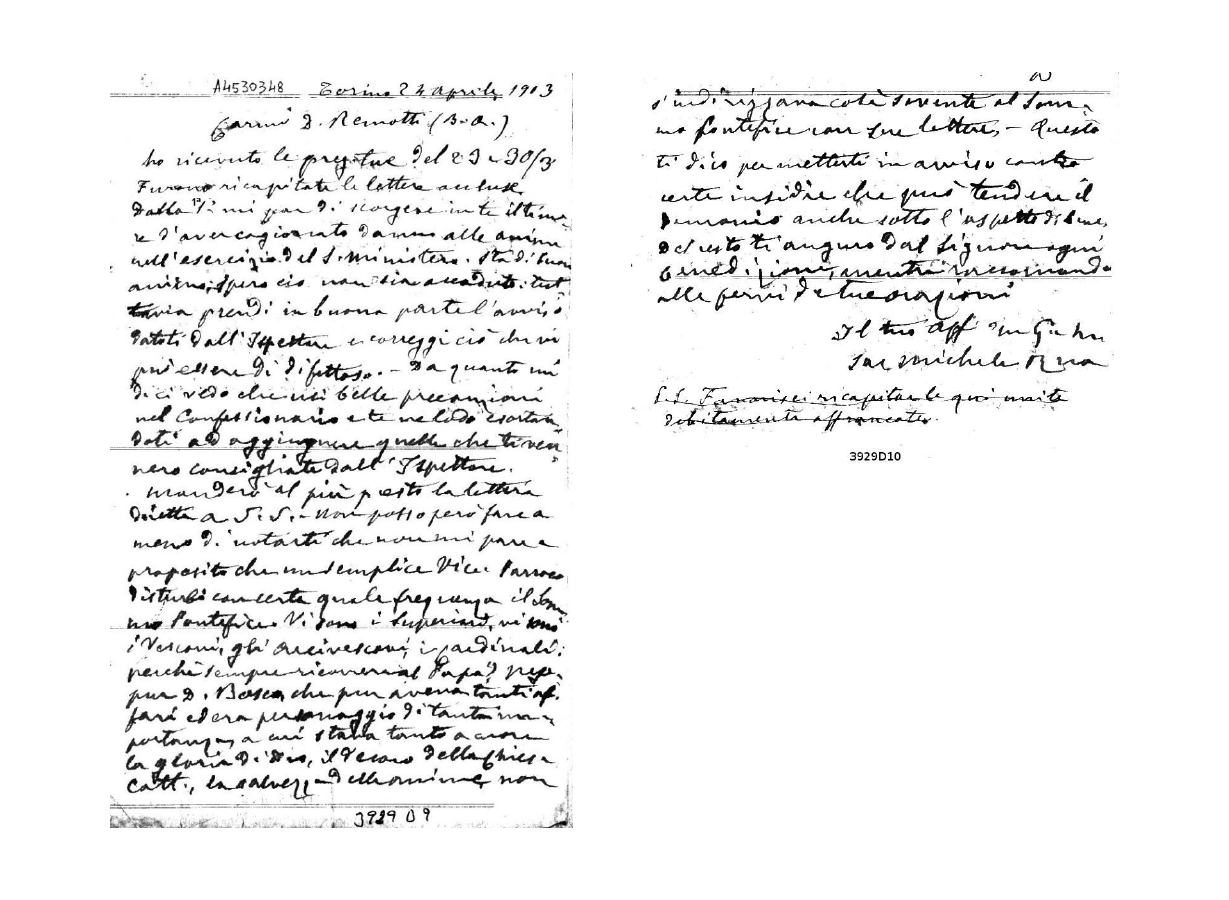 A4530348 Torino 24 aprile 1903
Carmo D. Remotti (B. A.)
ho ricevuto le pregtue del 23 e 30/3
Furono ricapitate le lettere accluse.
Dalla 1ª mi par di scorgere in te il timo-
re d'aver cagionato danno alle anime
nell'esercizio del S. Ministero. Sta di buon
animo, spero ciò non sia accaduto: tut
tavia prendi in buona parte l'avviso
datoti dall'Ispettore e correggi ciò che vi
può essere di difettoso. - Da quanto mi
dici vedo che usi belle precauzioni
nel Confessionario e te ne lodo esortan-
doti ad aggiungere quelle che ti ven-
nero consigliate dall'Ispettore.
Manderò al più presto la lettera
diretta a S. S. - Non posso però fare a
meno di notarti che non mi pare a
proposito che un semplice Vice-Parroco
disturbi con certa quale frequenza il Som
mo Pontefice. Vi sono i Superiori, vi sono
i Vescovi, gli Arcivescovi, i Cardinali:
perchè sempre ricorrere al Papa?
pur D. Bosco, che pur aveva tanti af-
fari ed era personaggio di tanta im-
portanza, a cui stava tanto a cuore
la gloria di Dio, il decoro della Chiesa
Catt., la salvezza delle anime, non
3929 D 9
s'indirizzava così sovente al Som-
mo Pontefice con sue lettere. - Questo
ti dico per metterti in avviso contro
certe insidie che può tendere il
Demonio anche sotto l'aspetto di bene.
Del resto ti auguro dal Signore ogni
benedizione, mentre mi raccomando
alle fervide tue orazioni
Il tuo aff in G. e M.
Sac Michele Rua
P.S. Favorisci ricapitare le qui unite
debitamente affrancate.
3929D10